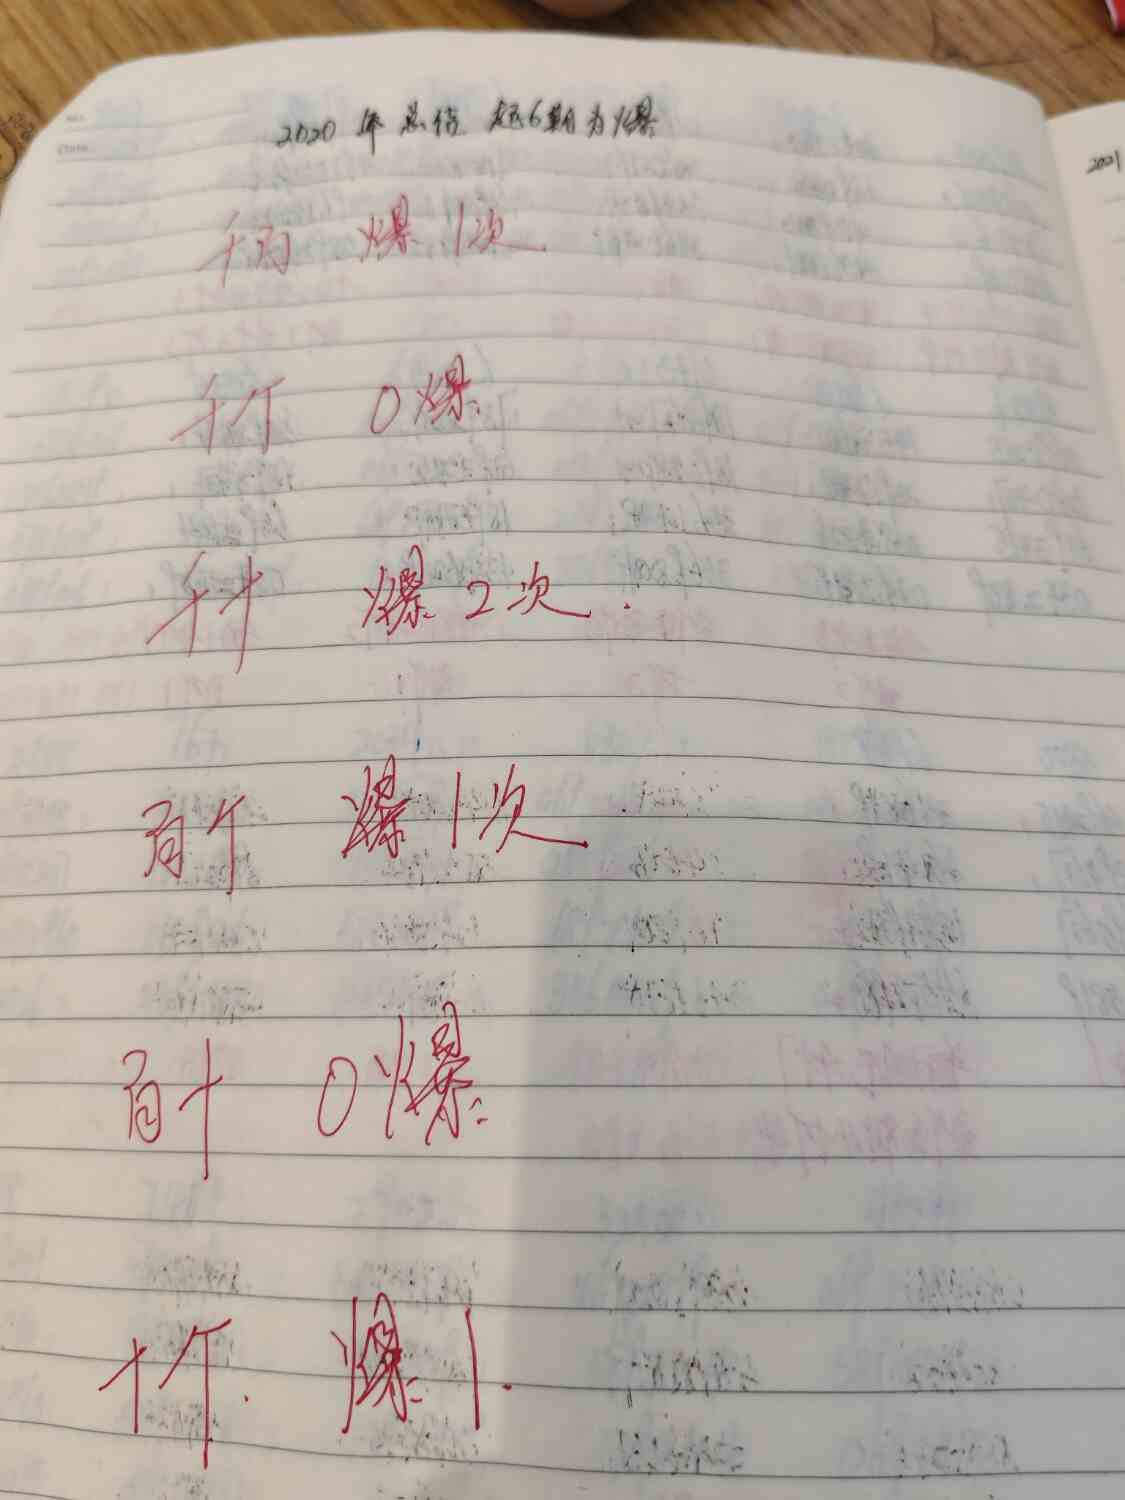 2020 年总结 超6期为爆
2021
千百 爆1次
千个 0爆
千十 爆2次.
百个 爆1次
百十 0爆
十个. 爆1.